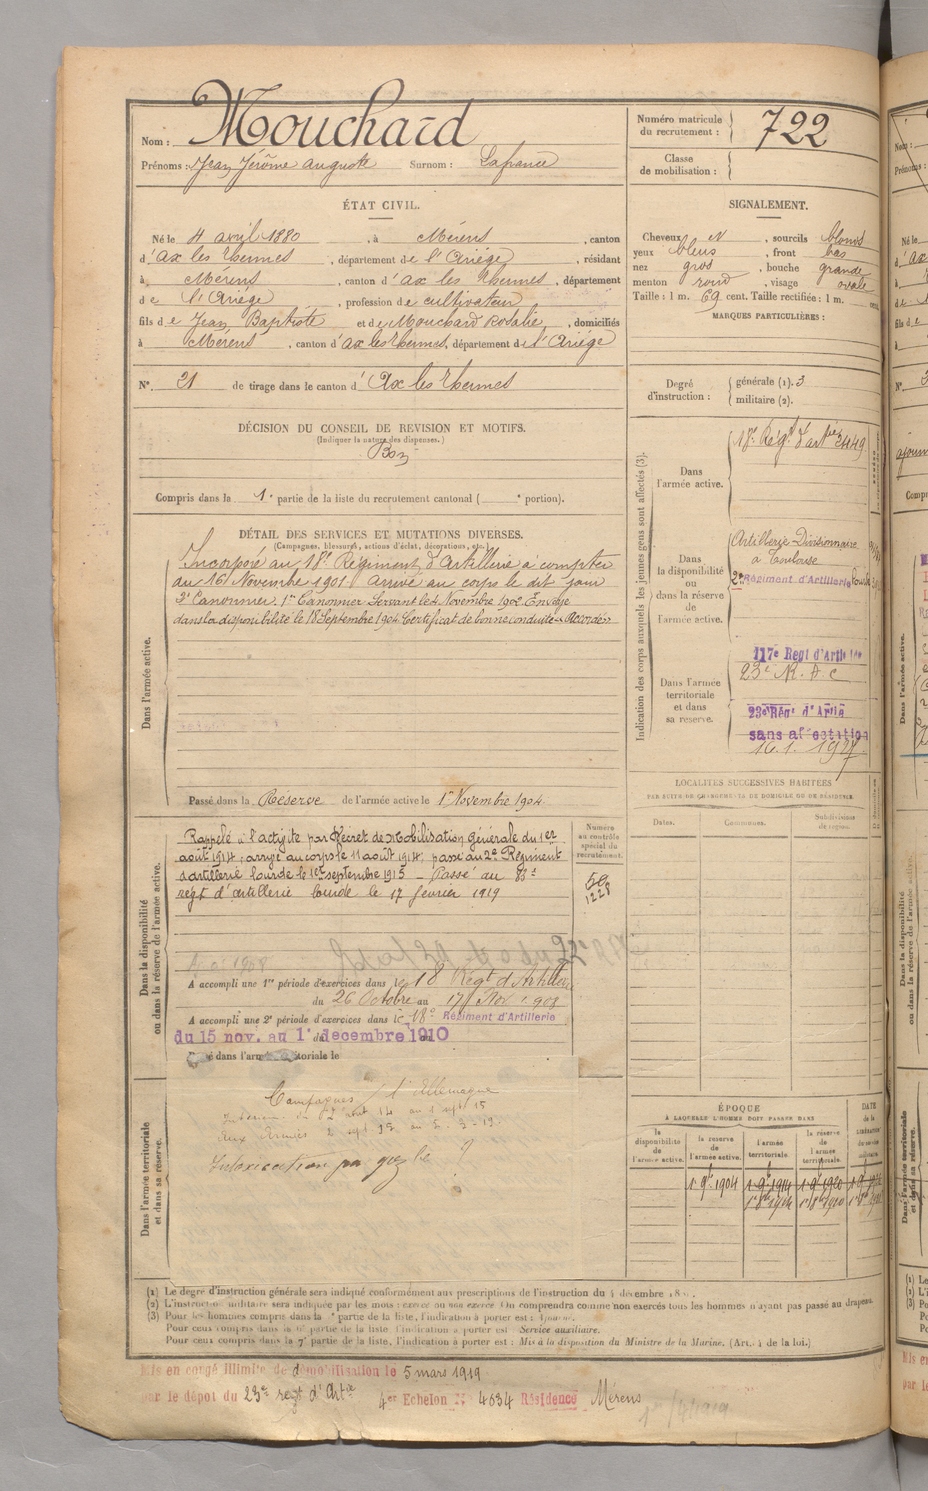 Nom : Mouchard
Prénoms : Jean Jérôme Auguste Surnom : Lafrance
Numéro matricule du recrutement : 722
Classe de mobilisation :
ÉTAT CIVIL.
Né le 4 avril 1880, à Mérens, canton
d'Ax les Thermes, département de l'Ariège, résidant
à Mérens, canton d'Ax les Thermes, département
de l'Ariège, profession de cultivateur
fils de Jean Baptiste et de Mouchard Rosalie, domiciliés
à Mérens, canton d'Ax les Thermes, département de l'Ariège
N° 21 de tirage dans le canton d'Ax les Thermes
SIGNALEMENT.
Cheveux N, sourcils blonds
yeux bleus, front bas
nez gros, bouche grande
menton rond, visage ovale
Taille : 1 m. 69 cent. Taille rectifiée : 1 m. cent.
MARQUES PARTICULIÈRES :
Degré d'instruction : générale (1). 3
militaire (2).
DÉCISION DU CONSEIL DE REVISION ET MOTIFS.
(Indiquer la nature des dispenses.)
Bon
Compris dans la 1e partie de la liste du recrutement cantonal ( e portion).
DÉTAIL DES SERVICES ET MUTATIONS DIVERSES.
(Campagnes, blessures, actions d'éclat, décorations, etc.)
Dans l'armée active.
Incorporé au 18e Régiment d'Artillerie à compter
du 16 Novembre 1901 Arrivé au corps le dit jour
2e Canonnier. 1er Canonnier Servant le 4 Novembre 1902 Envoyé
dans la disponibilité le 18 Septembre 1904 Certificat de bonne conduite "Accordé"
Passé dans la Réserve de l'armée active le 1er Novembre 1904
Indication des corps auxquels les jeunes gens sont affectés (3).
Dans l'armée active.
18e Régt d'artie 2449
Dans la disponibilité ou dans la réserve de l'armée active.
Artillerie Divisionnaire
à Toulouse
2e Régiment d'Artillerie lourde
Dans l'armée territoriale et dans sa réserve.
117e Regt d'Artillerie
23e R.A.C
23e Régt d'Artie
sans affectation
16.1. 1927.
LOCALITÉS SUCCESSIVES HABITÉES
PAR SUITE DE CHANGEMENTS DE DOMICILE OU DE RÉSIDENCE.
Dates. Communes. Subdivisions de région.
Dans la disponibilité ou dans la réserve de l'armée active.
Rappelé à l'activité par Décret de Mobilisation Générale du 1er
août 1914; arrivé au corps le 11 août 1914, passé au 2e Régiment
d'artillerie lourde le 1er septembre 1915 – Passé au 83e
régt d'artillerie lourde le 17 février 1919
Numéro au contrôle spécial du recrutement.
1228
A accompli une 1re période d'exercices dans le 18e Régt d'Artillerie
du 26 Octobre au 17 Nov. 1908
A accompli une 2e période d'exercices dans le 18e Régiment d'Artillerie
du 15 nov. au 1er decembre 1910
Passé dans l'armée territoriale le
Dans l'armée territoriale et dans sa réserve.
Campagnes c/ l'Allemagne
Intérieur du 2 août 14 au 1 sept 15
aux Armées 2 sept 15 au 5-3-19.
Intoxication par gaz le ?
ÉPOQUE
À LAQUELLE L'HOMME DOIT PASSER DANS
la disponibilité de l'armée active. la réserve de l'armée active. l'armée territoriale. la réserve de l'armée territoriale.
DATE de la LIBÉRATION du service militaire.
1er 9bre 1904 1er 9bre 1914 1er 9bre 1920
1er 8bre 1914 1er 8bre 1920
(1) Le degré d'instruction générale sera indiqué conformément aux prescriptions de l'instruction du 4 décembre 18
(2) L'instruction militaire sera indiquée par les mots : exercé ou non exercé. On comprendra comme non exercés tous les hommes n'ayant pas passé au drapeau.
(3) Pour les hommes compris dans la e partie de la liste, l'indication à porter est : Ajourné.
Pour ceux compris dans la 6e partie de la liste l'indication à porter est : Service auxiliaire.
Pour ceux compris dans la 7e partie de la liste, l'indication à porter est : Mis à la disposition du Ministre de la Marine. (Art. 4 de la loi.)
Mis en congé illimité de démobilisation le 5 mars 1919
par le dépôt du 23e regt d'Artie 4er Echelon N° 4634 Résidence Mérens